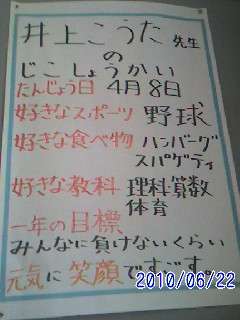 井上こうた先生
の
じこしょうかい
たんじょう日 4月8日
好きなスポーツ 野球
好きな食べ物 ハンバーグ
スパゲティ
好きな教科 理科算数
体育
一年の目標
みんなに負けないくらい
元気に笑顔ですごす。
2010/06/22